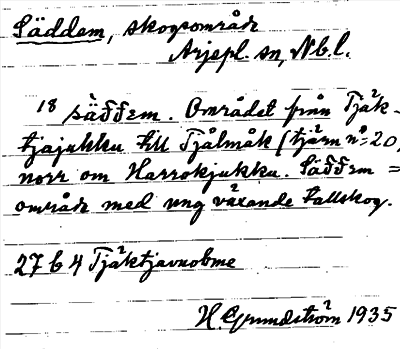 Säddem, skogsområde
Arjepl. sn, Nb.l.
18 säđđεm. Området från Tjäk-
tjajukku till Tjålmåk (tjärn nº 20,
norr om Harrokjukku. Säđđεm =
område med ung växande tallskog.
27 b 4 Tjäktjavuobme
H. Grundström 1935